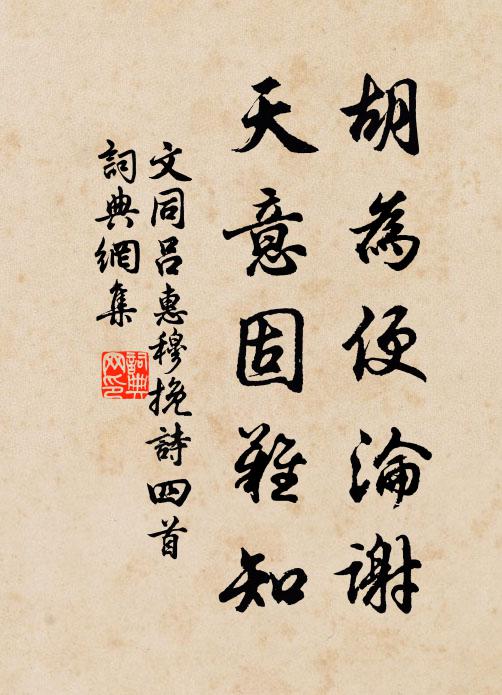 胡為便淪謝
天意固難知
文同呂惠穆挽詩四首
詞典網集
詞典网印